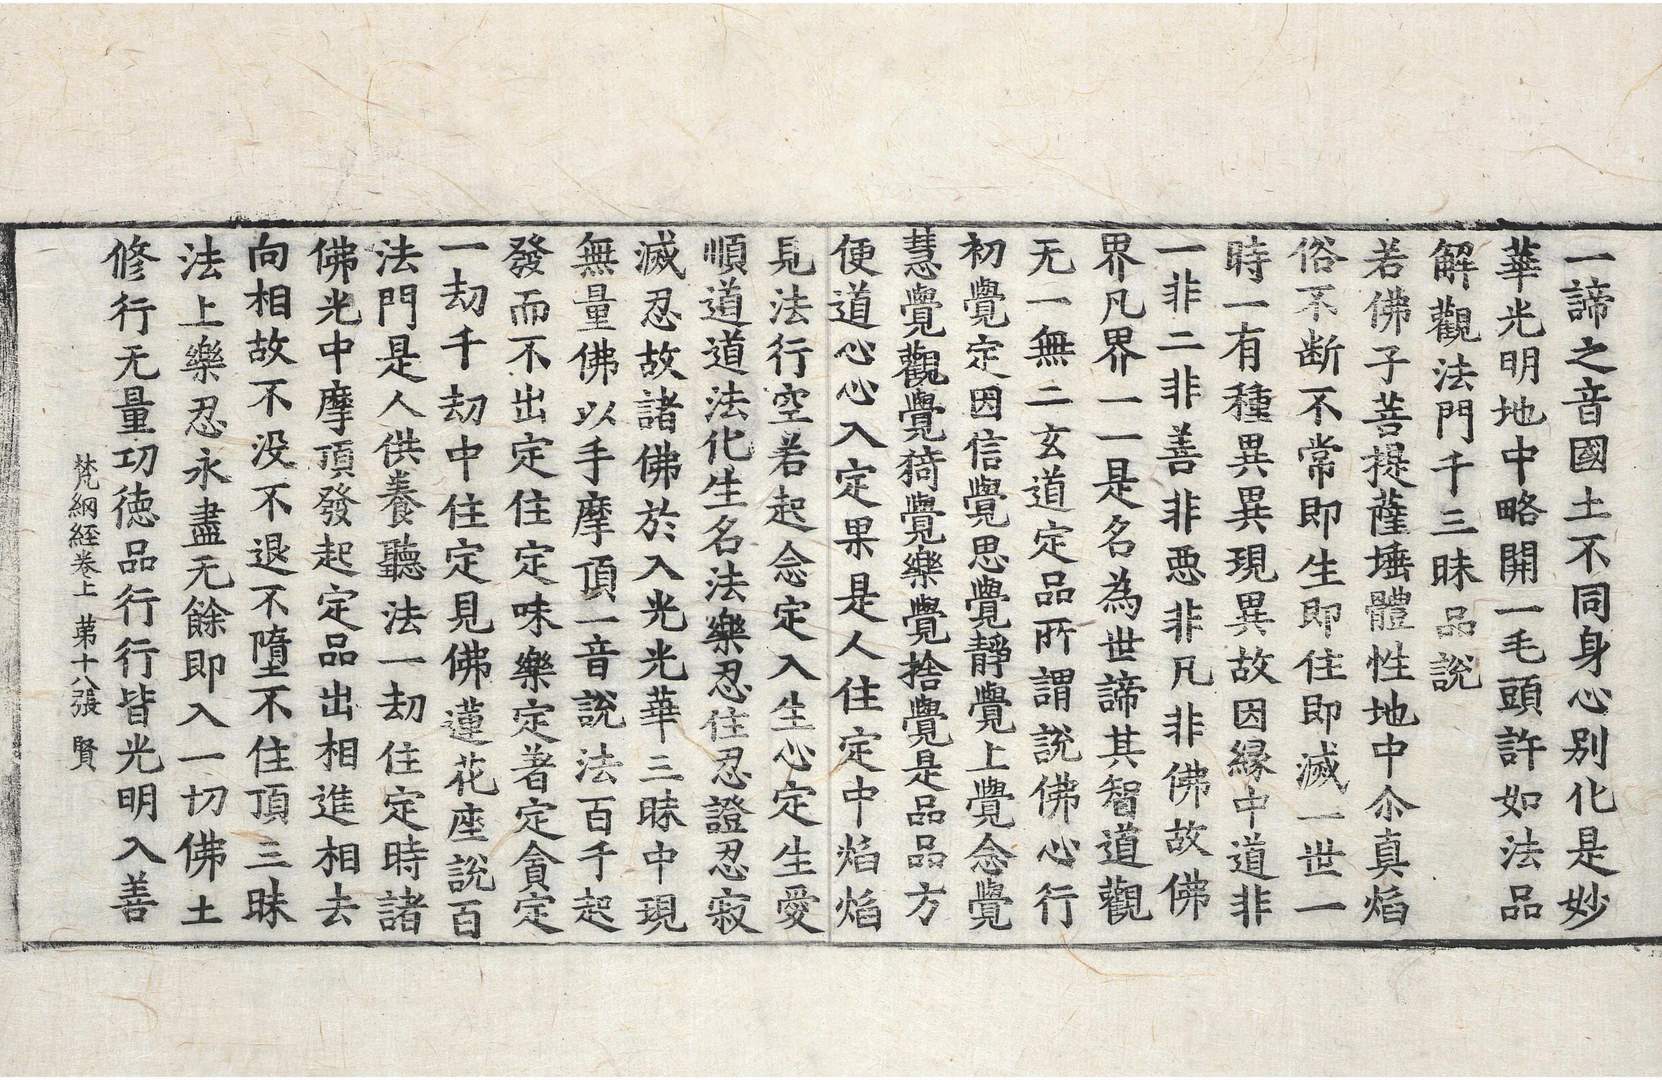 一諦之音國土不同身心別化是妙
華光明地中略開一毛頭許如法品
解觀法門千三昧品說
若佛子菩提薩埵體性地中尒真焰
俗不断不常即生即住即滅一世一
時一有種異異現異故因緣中道非
一非二非善非惡非凡非佛故佛
界凡界一一是名為世諦其智道觀
无一無二玄道定品所謂說佛心行
初覺定因信覺思覺靜覺上覺念覺
慧覺觀覺猗覺樂覺捨覺是品品方
便道心心入定果是人住定中焰焰
見法行空若起念定入生心定生愛
順道道法化生名法樂忍住忍證忍寂
滅忍故諸佛於入光光華三昧中現
無量佛以手摩頂一音說法百千起
發而不出定住定味樂定著定貪定
一劫千劫中住定見佛蓮花座說百
法門是人供養聽法一劫住定時諸
佛光中摩頂發起定品出相進相去
向相故不没不退不墮不住頂三昧
法上樂忍永盡无餘即入一切佛土
修行无量功德品行行皆光明入善
梵網経卷上 苐十八張 賢